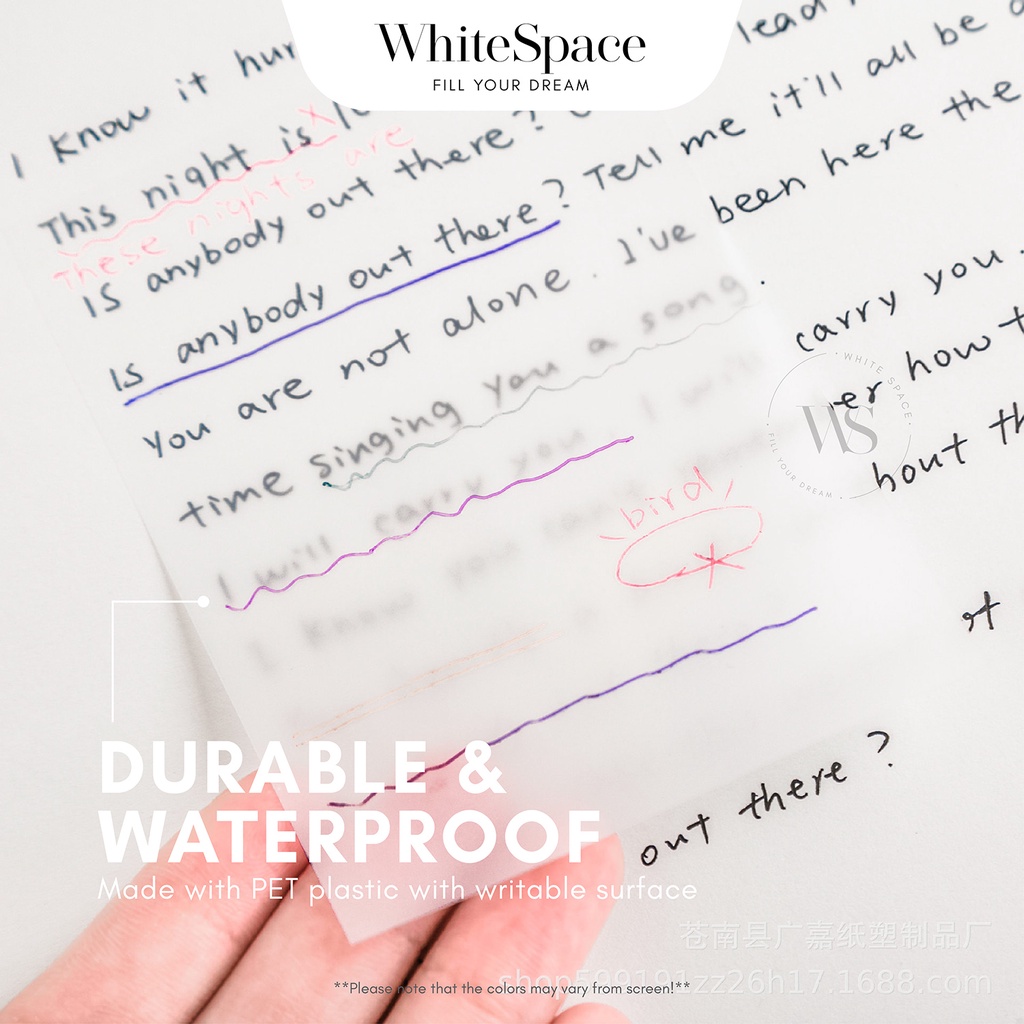 WhiteSpace
FILL YOUR DREAM
I know it hur
lead
This night is lo
Tell me it'll all be a
These nights are
Is anybody out there?
been here the
Is anybody out there?
You are not alone. I've
carry you.
time singing you a song.
er how t
WHITE SPACE
WS
FILL YOUR DREAM
I will carry you. I will
bout th
bird
I know you can't
of
DURABLE &
WATERPROOF
out there?
Made with PET plastic with writable surface
苍南县广嘉纸塑制品厂
shop599191zz26h17.1688.com
**Please note that the colors may vary from screen!**